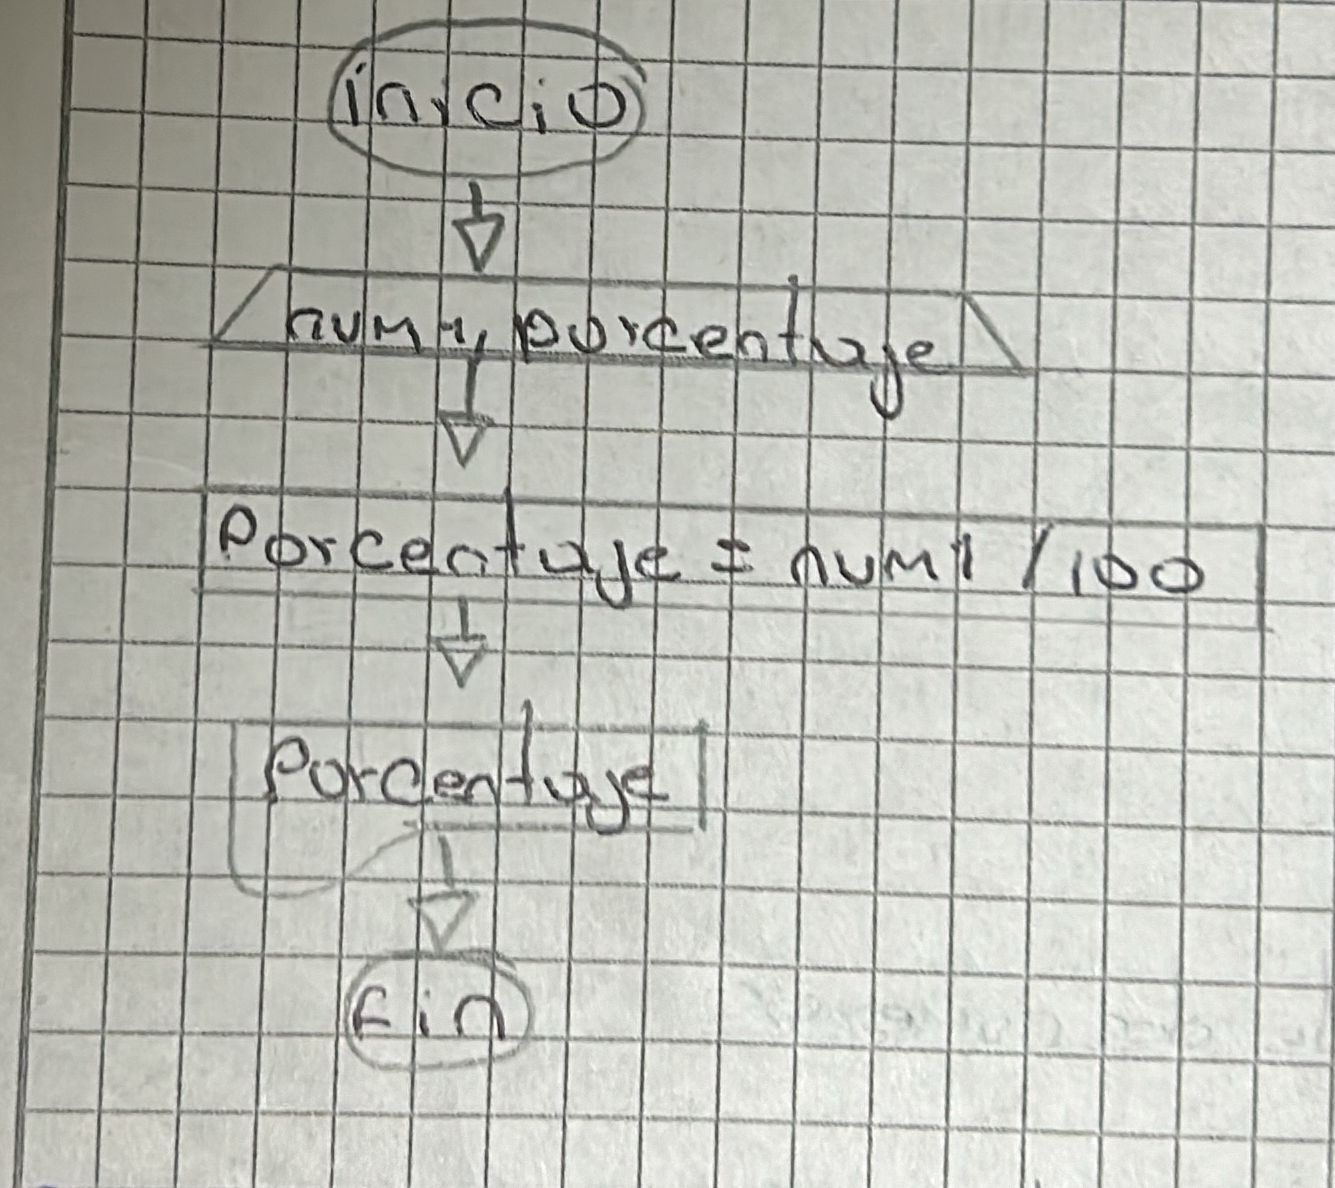 inicio
num 1, porcentaje
Porcentaje = num1 / 100
Porcentaje
Fin